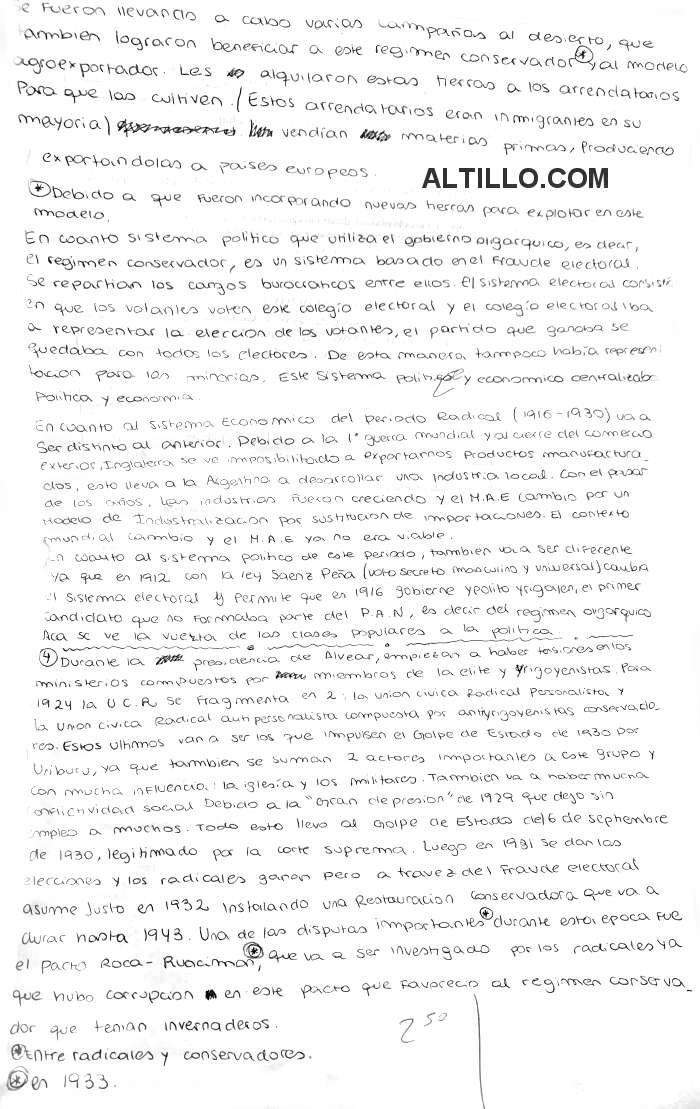 se fueron llevando a cabo varias campañas al desierto, que
tambien lograron beneficiar a este regimen conservador * y al modelo
agroexportador. Les alquilaron estas tierras a los arrendatarios
Para que las cultiven. (Estos arrendatarios eran inmigrantes en su
mayoria) vendian materias primas, Produciendo
exportaindolas a paises europeos.
ALTILLO.COM
* Debido a que fueron incorporando nuevas tierras para explotar en este
modelo.
En cuanto sistema politico que utiliza el gobierno oligarquico, es decir,
el regimen conservador, es un sistema basado en el Fraude electoral.
Se repartian los cargos burocraticos entre ellos. El sistema electoral consistia
en que los votantes voten este colegio electoral y el colegio electoral iba
a representar la eleccion de los votantes, el partido que ganaba se
quedaba con todos los electores. De esta manera, tampoco habia represen
tacion para las minorias. Este sistema politico y economico centralizaba
Politica y economia.
En cuanto al sistema Economico del periodo Radical (1916-1930) va a
Ser distinto al anterior. Debido a la 1° guerra mundial y al cierre del comercio
exterior, Inglaterra se ve imposibilitada a exportarnos Productos manufactura_
dos, esto lleva a la Argentina a desarrollar una Industria local. Con el pasar
de los años, las industrias fueron creciendo y el M.A.E cambio por un
Modelo de Industralizacion por sustitucion de importaciones. El contexto
mundial cambio y el M.A.E ya no era viable.
En cuanto al sistema politico de este periodo, tambien va a ser diferente
ya que en 1912 con la ley Saenz Peña (voto secreto masculino y universal) cambia
el sistema electoral y Permite que en 1916 gobierne ypolito yrigoyen, el primer
candidato que no formaba parte del P.A.N, es decir del regimen oligarquico
Aca se ve la vuelta de las clases populares a la politica.
4 Durante la presidencia de Alvear, empiezan a haber tensiones en los
ministerios compuestos por miembros de la elite y Yrigoyenistas. Para
1924 la U.C.R se fragmenta en 2: la union civica Radical Personalista y
la Union civica Radical antipersonalista compuesta por antiyrigoyenistas conservado_
res. Estos ultimos van a ser los que impulsen el Golpe de Estado de 1930 por
Uriburu, ya que tambien se suman 2 actores importantes a este grupo y
con mucha influencia: la iglesia y los militares. Tambien va a haber mucha
conflictividad social Debido a la "Gran depresion" de 1929 que dejo sin
empleo a muchos. Todo esto llevo al Golpe de Estado del 6 de septiembre
de 1930, legitimado por la corte suprema. Luego en 1931 se dan las
elecciones y los radicales ganan pero a travez del fraude electoral
asume Justo en 1932 Instalando una Restauracion Conservadora que va a
durar hasta 1943. Una de las disputas importantes * durante esta epoca fue
el pacto Roca-Runciman *, que va a ser investigado por los radicales ya
que hubo corrupcion en este pacto que favorecio al regimen conserva_
dor que tenian invernaderos.
2 50
* Entre radicales y conservadores.
* en 1933.